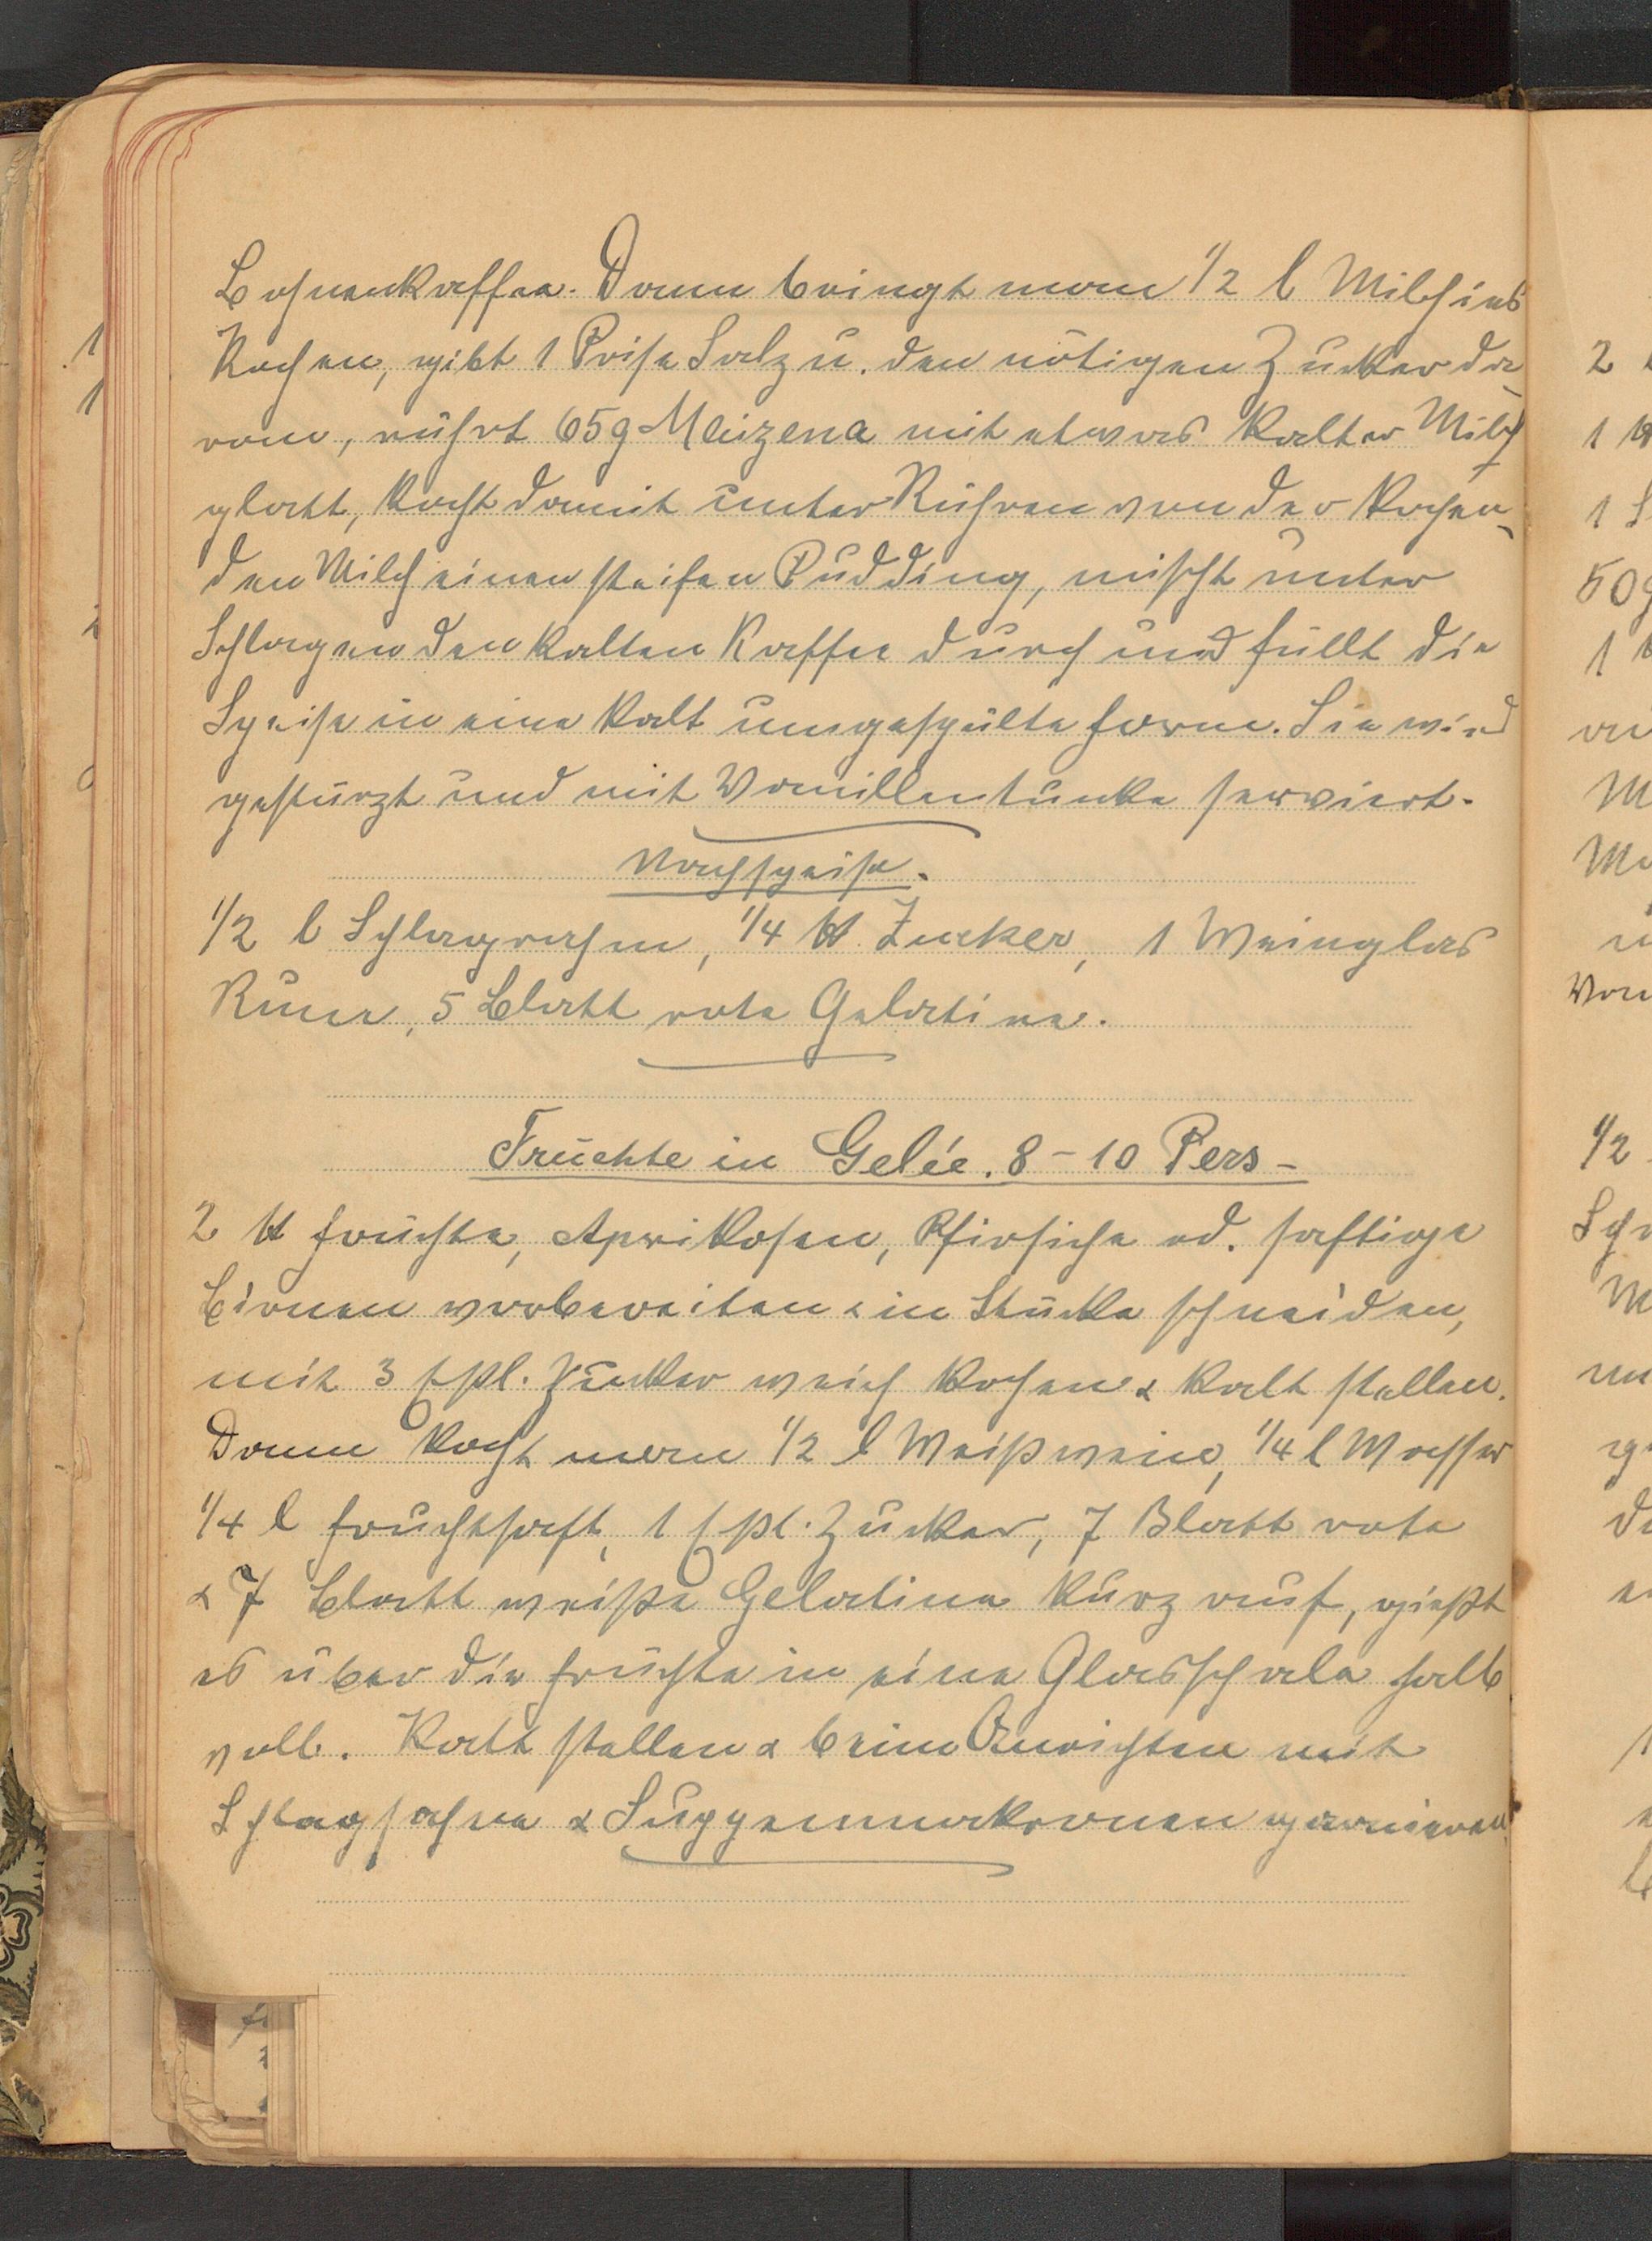 Bohnenkaffee. Dann bringt man 1/2 l Milch ins
Kochen, gibt 1 Prise Salz u. den nötigen Zucker da-
ran, rührt 65g Maizena mit etwas kalter Milch
glatt, kocht damit unter Rühren von der kochen-
den Milch einen steifen Pudding, mischt unter
Schlagen den kalten Kaffee durch und füllt die
Speise in eine kalt umgespülte Form. Sie wird
gestürzt und mit Vanillentunke serviert.
Nachspeise.
1/2 l Schlagrahm, 1/4 ℔ Zucker, 1 Weinglas
Rum, 5 Blatt rote Gelatine.
Früchte in Gelée. 8-10 Pers-
2 ℔ Früchte, Aprikosen, Pfirsiche od. saftige
Birnen vorbereiten & in Stücke schneiden,
mit 3 Eßl. Zucker weich kochen & kalt stellen.
Dann kocht man 1/2 l Weißwein, 1/4 l Wasser
1/4 l Fruchtsaft, 1 Eßl. Zucker, 7 Blatt rote
& 7 Blatt weiße Gelatine kurz auf, gießt
es über die Früchte in eine Glasschale halb
voll. Kalt stellen & beim Anrichten mit
Schlagsahne & Suppenmakronen garnieren.
2
1 ℔
1
50g
1
1/2